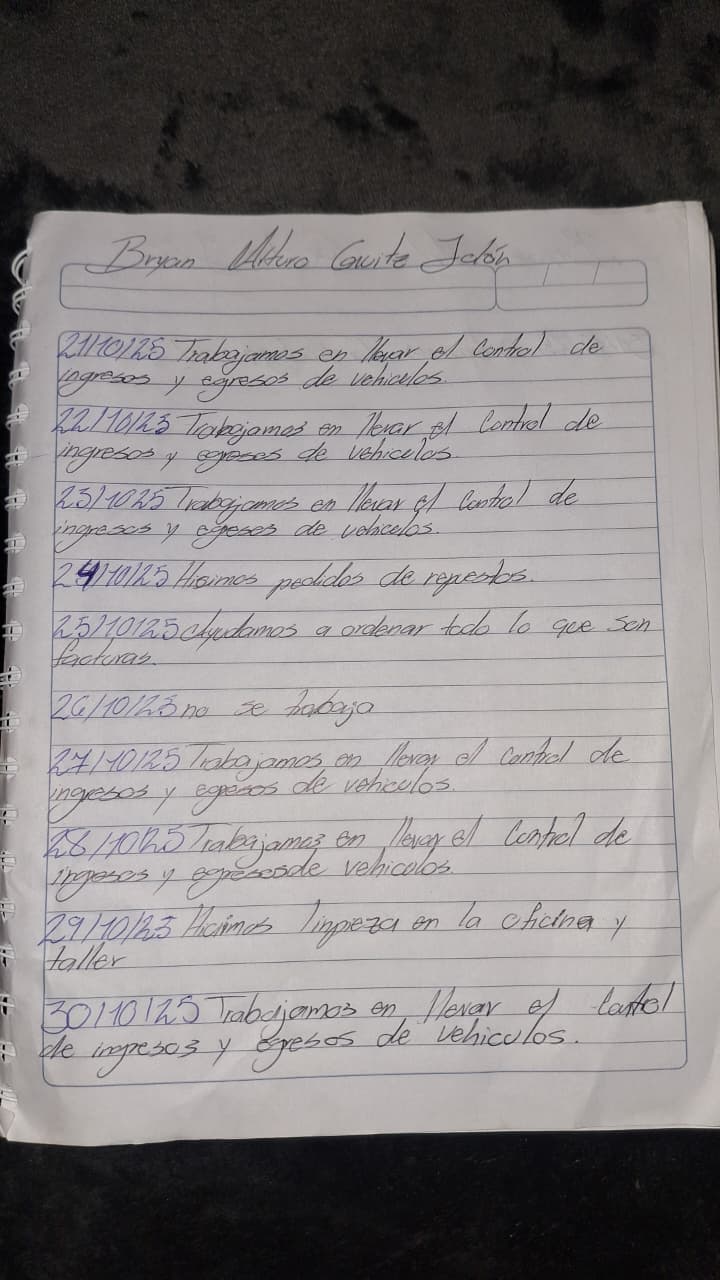 Bryan Arturo
21/10/25 Trabajamos en llevar el Control de
ingresos y egresos de vehiculos.
22/10/25 Trabajamos en llevar el Control de
ingresos y egresos de vehiculos.
23/1025 Trabajamos en llevar el Control de
ingresos y egresos de vehiculos.
24/10/25 Hicimos pedidos de repuestos.
25/10/25 Ayudamos a ordenar todo lo que son
facturas.
26/10/25 no se trabaja
27/10/25 Trabajamos en llevar el control de
ingresos y egresos de vehiculos.
28/10/25 Trabajamos en llevar el Control de
ingresos y egresos de vehiculos.
29/10/25 Hicimos limpieza en la oficina y
taller
30/10/25 Trabajamos en llevar el Control
de ingresos y egresos de vehiculos.